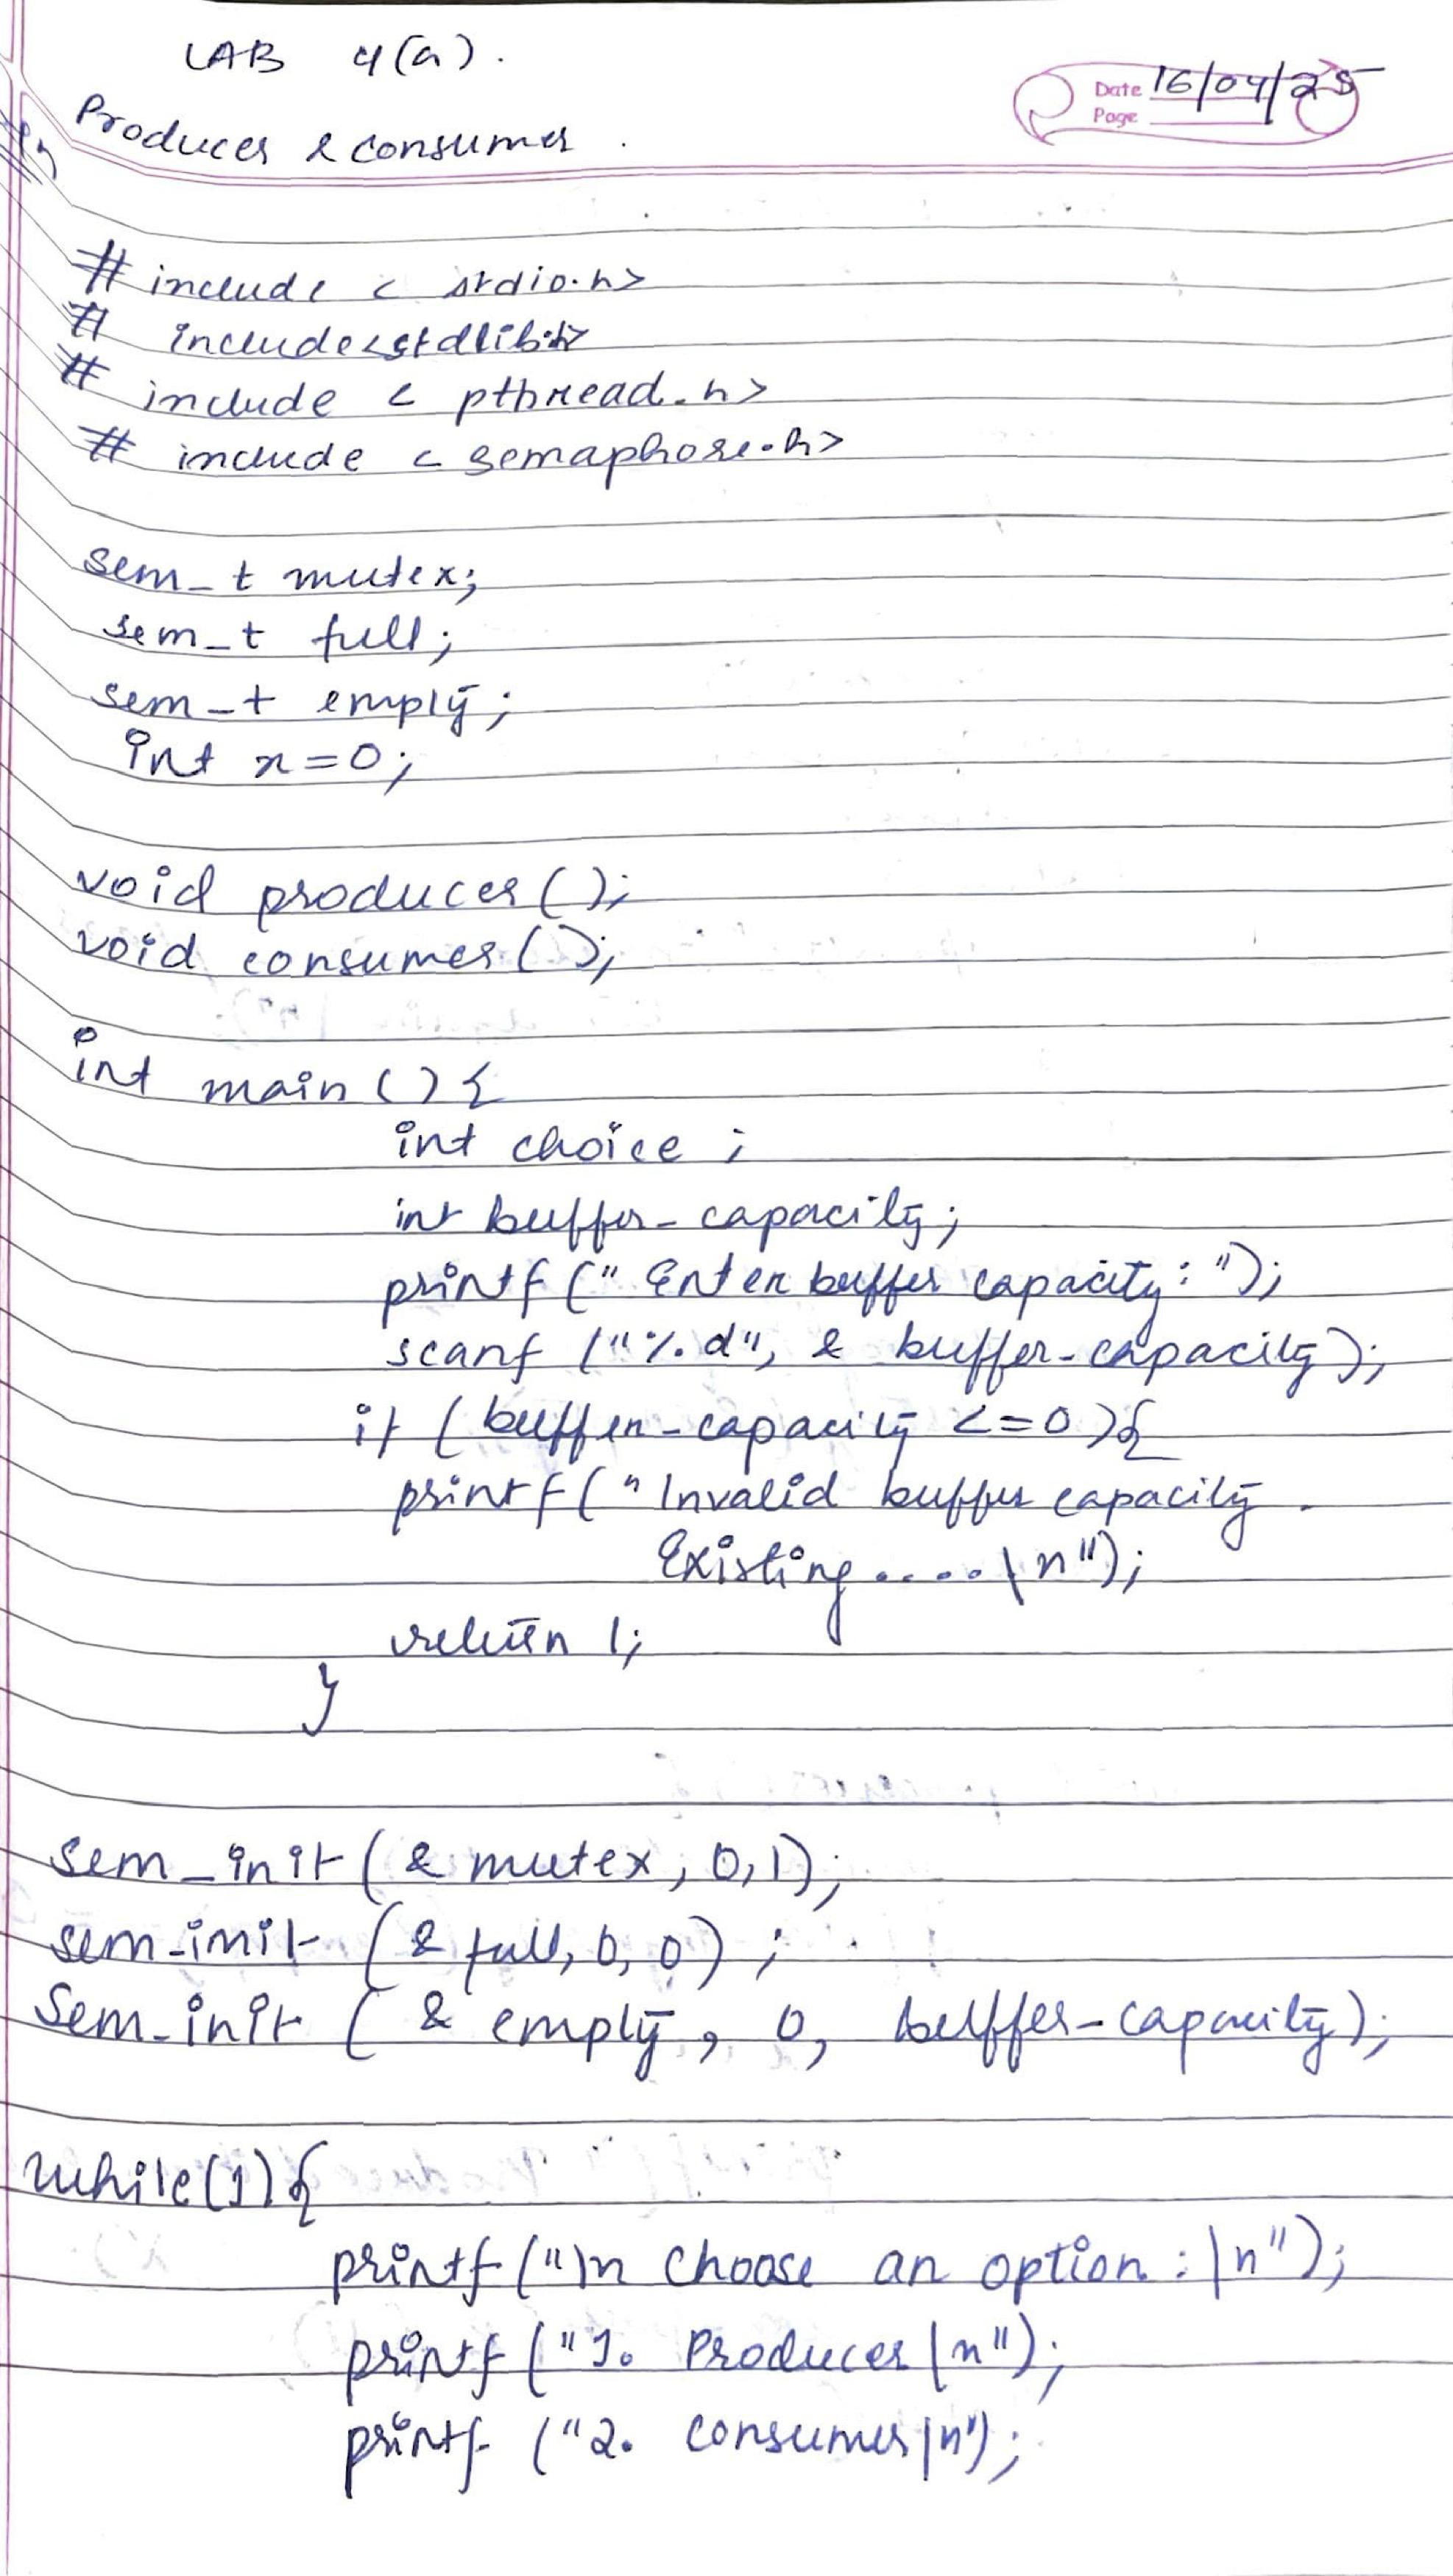 LAB 4(a).
Date 16/04/25
Page
Producer & consumer.
# include < stdio.h>
# include<stdlib.h>
# include < pthread.h>
# include < semaphore.h>
sem_t mutex;
sem_t full;
sem_t empty;
int x=0;
void producer();
void consumer();
int main () {
int choice ;
int buffer_capacity;
printf (" Enter buffer capacity: ");
scanf ("%d", & buffer_capacity);
if (buffer_capacity <=0){
printf("Invalid buffer capacity.
Existing.....\n");
return 1;
}
sem_init (& mutex, 0,1);
sem_init (& full, 0, 0) ;
Sem_init ( & empty, 0, buffer_capacity);
while(1){
printf ("\n choose an option :\n");
printf ("1. Producer\n");
printf ("2. consumer\n");